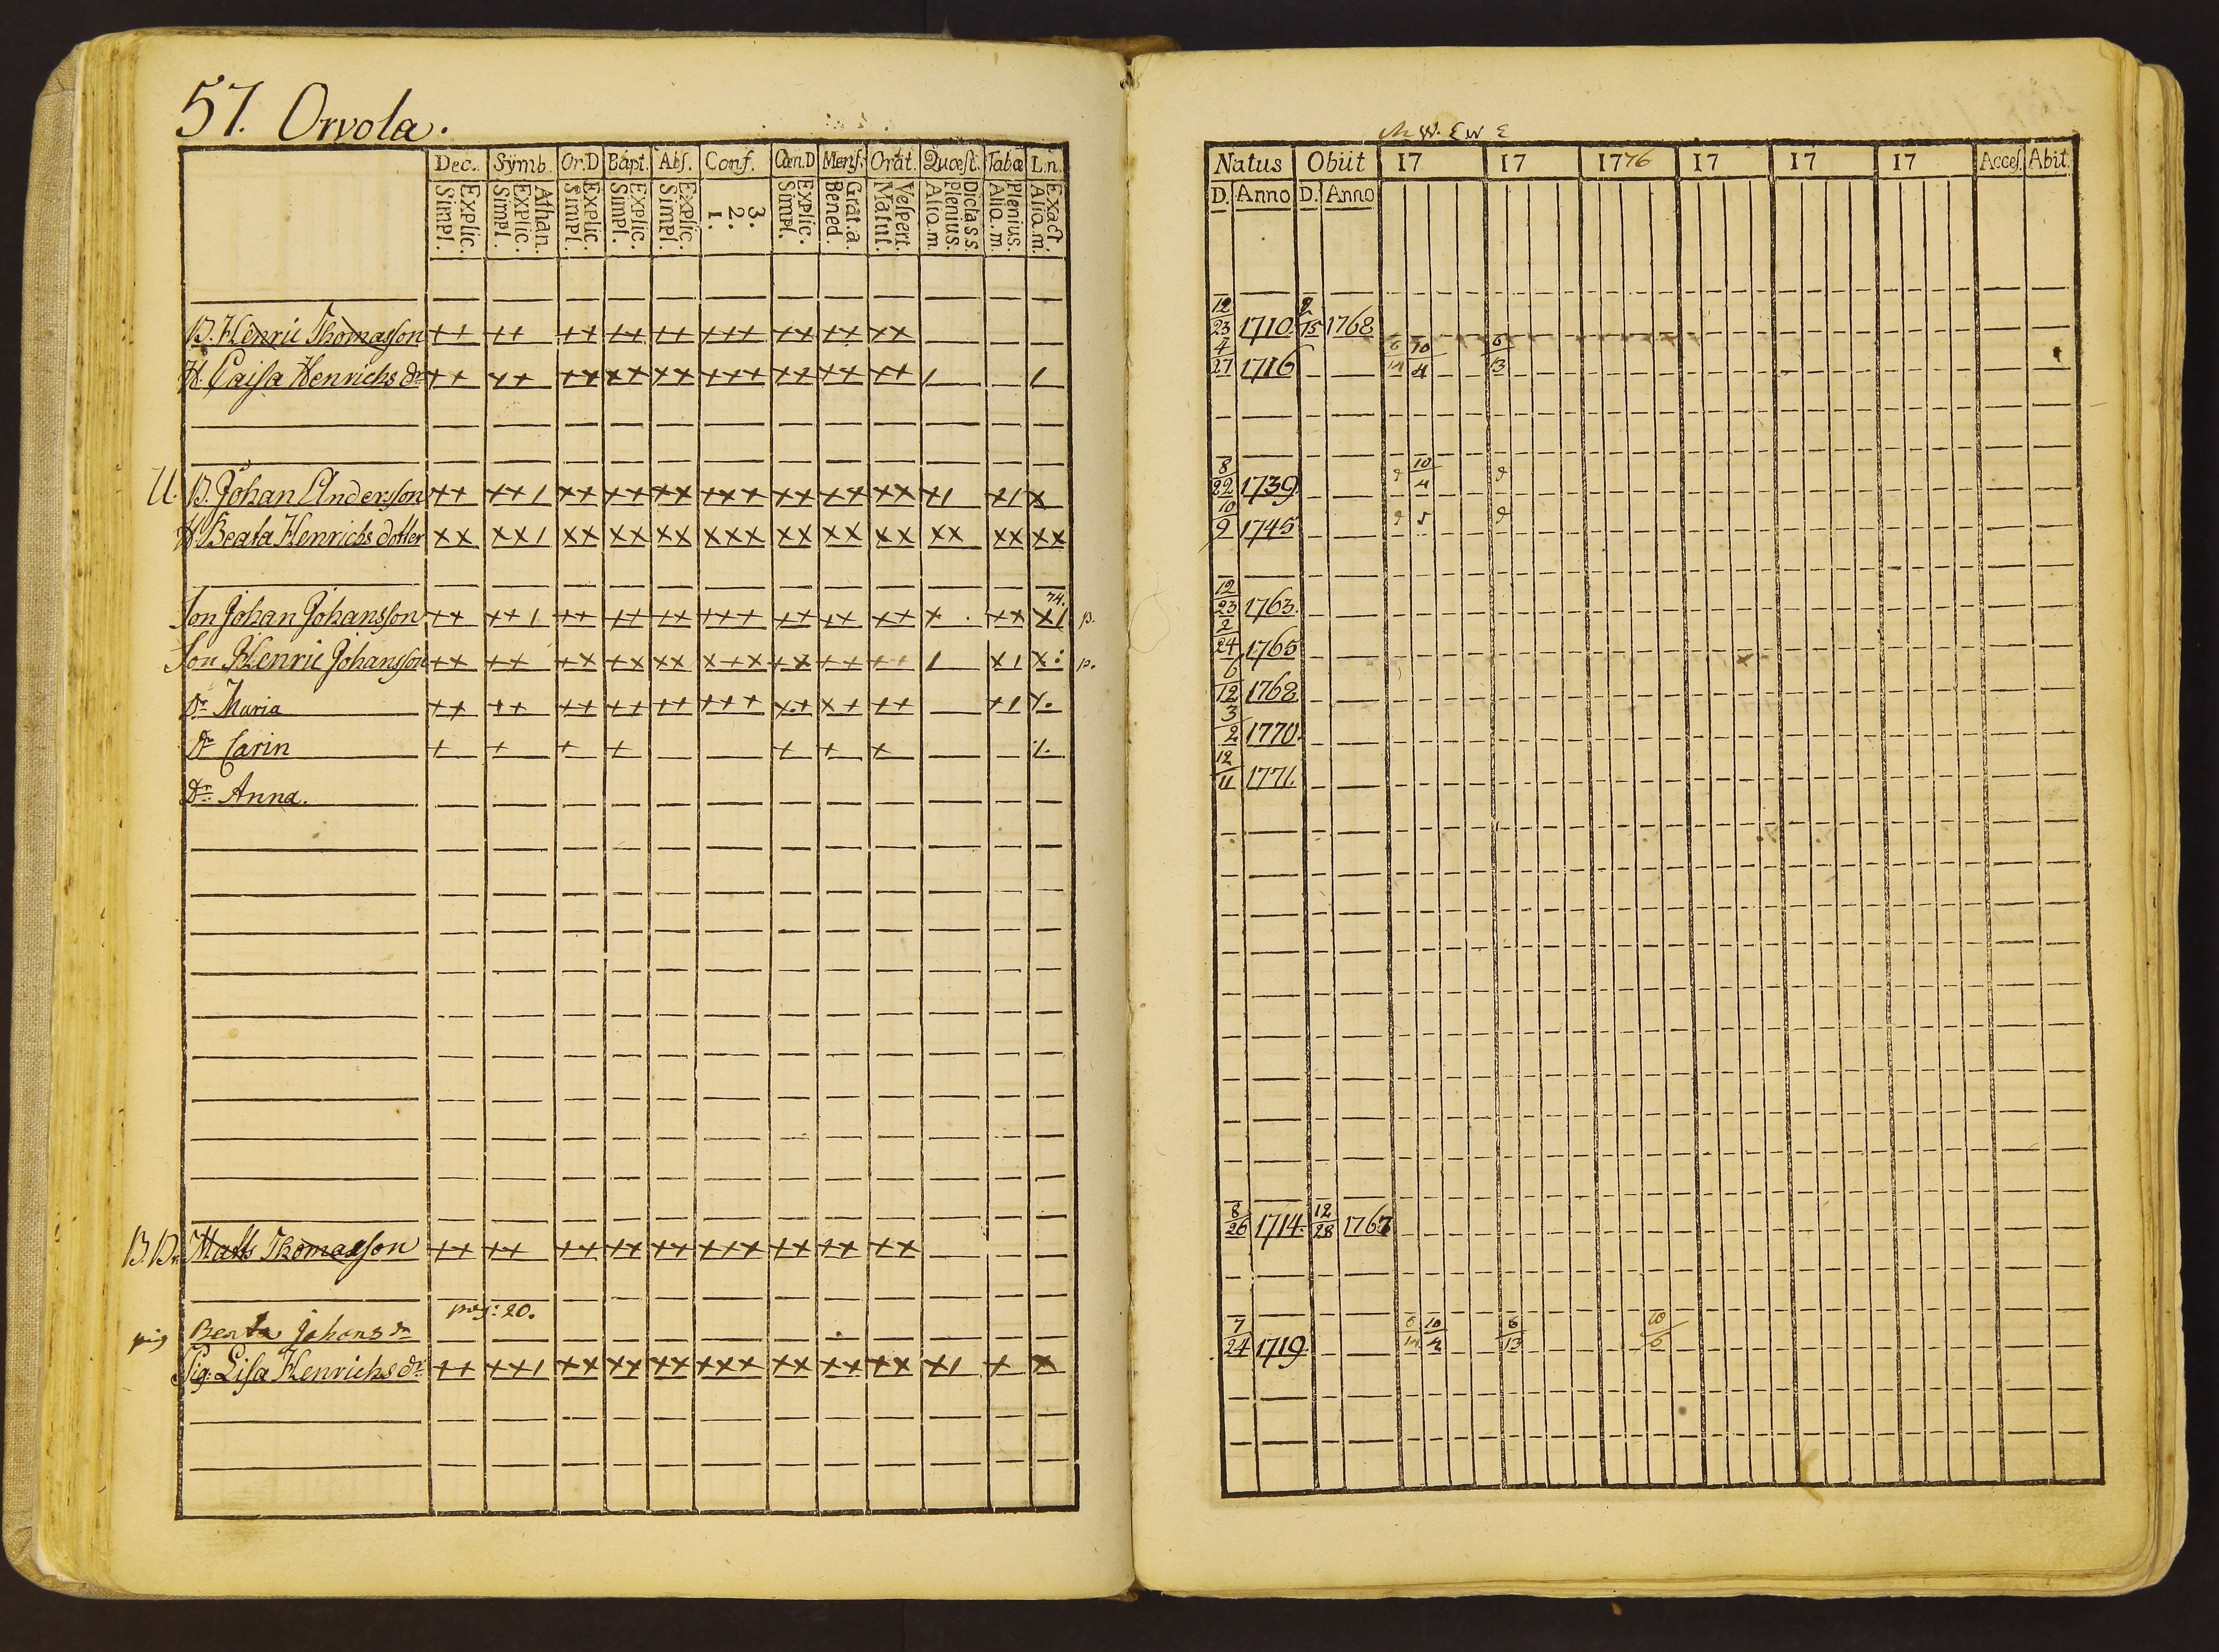 57. Orvola.
Dec. Symb. Or.D Bapt. Abs. Conf. Cœn.D Mens. Orat. Quœst. Tabœ L.n.
Explic. Simpl. Athan. Explic. Simpl. Explic. Simpl. Explic. Simpl. Explic. Simpl. 3. 2. 1. Explic. Simpl. Grat.a. Bened. Vespert. Matut. Dict.ass. Plenius. Aliq.m. Plenius. Aliq.m. Exact. Aliq.m.
B. Henric Thomasson ++ ++ ++ ++ ++ +++ ++ ++ ××
H. Caisa Henrichs dr ++ ++ ++ ++ ×× +++ ++ ++ ++ / /
U. B. Johan Andersson ++ ++/ ×× ++ ×× +++ ++ ++ ×× ×/ ×/ ×
H. Beata Henrichs dotter ×× ××/ ×× ×× ×× ××× ×× ×× ×× ×× ×× ××
74.
Son Johan Johansson ++ ++/ ++ ++ ++ +++ ++ ++ ×× × . ×× ×/ p.
Son Henric Johansson ++ ++ +× ++ ×× ×+× ++ ++ ++ / ×/ ×: p.
Dr Maria ++ ++ ++ ++ ++ +++ ×+ ×+ ++ +/ ×.
Dr Carin + + + + + + + /.
Dr Anna.
B. Br. Matts Thomasson ++ ++ ++ ++ ++ +++ ++ ++ ××
pag: 20.
pig Beata Johans dr
Pig: Lisa Henrichs dr ++ ++/ ×× ×× ×× ××× ×× ×× ×× ×/ + ×
Natus Obiit 17 17 1776 17 17 17 Acces. Abit.
D. Anno D. Anno
12/23 1710. 2/15 1768
4/27 1716 10/4 6/13
8/22 1739 10/4
10/9 1745
12/23 1763.
2/24 1765
6/12 1768
3/2 1770.
12/11 1771.
8/26 1714. 12/28 1767
7/24 1719. 10/4 6/13